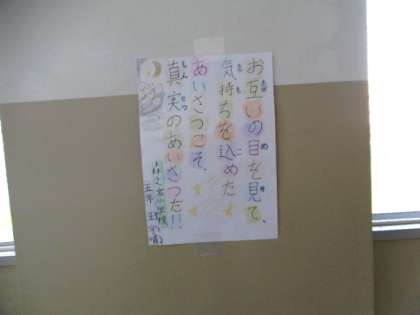 お互いの目を見て、
気持ちを込めた
あいさつこそ、
真実のあいさつだ!!